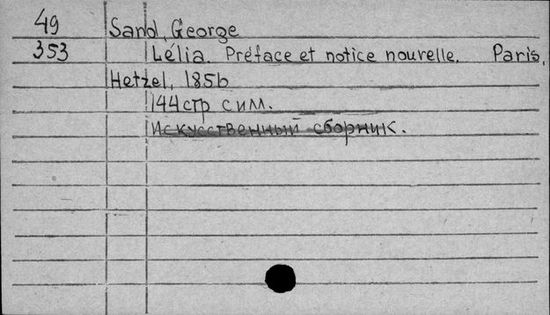 49 Sand, George
353 Lélia. Préface et notice nouvelle. Paris,
Hetzel, 1856
144стр с им.
Искусственный сборник.